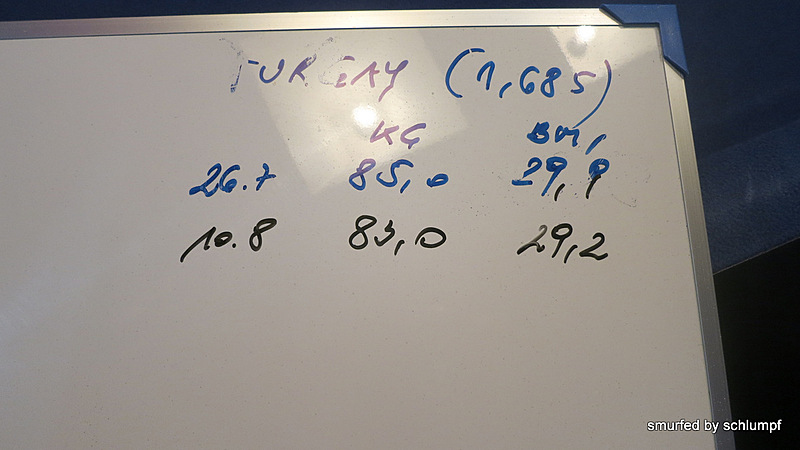 TURGAY (1,685)
KG BMI
26.7 85,0 29,9
10.8 83,0 29,2
smurfed by schlumpf